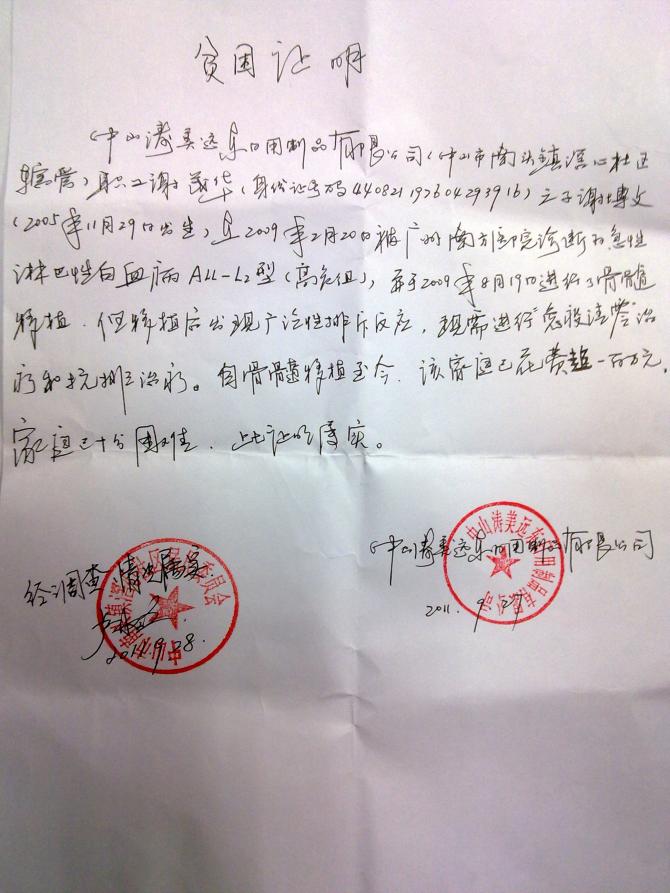 贫困证明
中山涛美远东日用制品有限公司(中山市南头镇滘心社区
辖管)职工谢茂华(身份证号码440821197604293916)之子谢博文
(2005年11月29日出生)且2009年2月20日被广州南方医院诊断为急性
淋巴性白血病ALL-L2型(高危组),并于2009年8月19日进行了骨髓
移植.但移植后出现广泛性排斥反应,现需进行免疫治
疗和抗排治疗。自骨髓移植至今.该家庭已花费超一百万元.
家庭已十分困难.上述证明属实。
中山涛美远东日用制品有限公司
2011.9.27
经调查情况属实
2011.9.28.
中山涛美远东日用制品有限公司